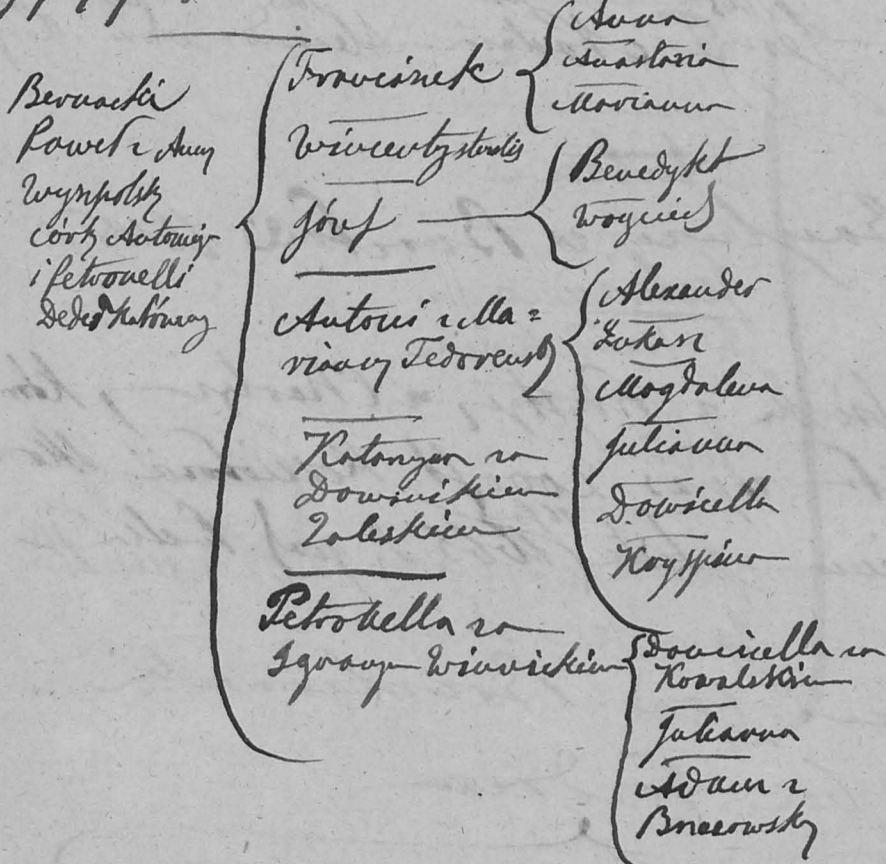 Bernacki
Paweł z Anny
Wyspolsky
córk Antoniego
i Petronelli
Franciszek
Wincenty sterilis
Józef
Antoni z Ma=
rianny Fedorensk
Katarzyna za
Dominikiem
Zaleskiem
Petronella za
Ignacym Winnickiem
Anna
Anastazia
Marianna
Benedykt
Woyciech
Alexander
Łukasz
Magdalena
Julianna
Domicella
Kryspina
Domicella za
Kowalskiem
Julianna
Adam z